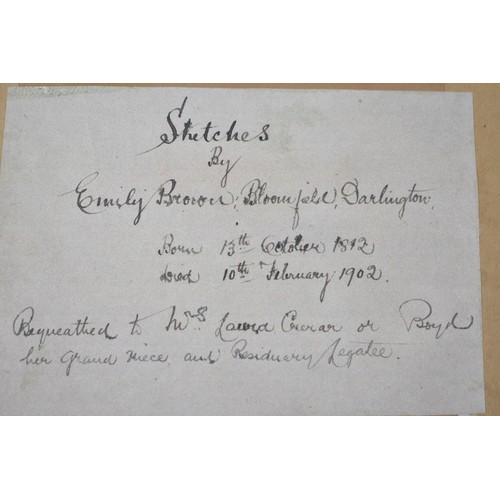 Sketches
By
Emily Brown, Bloomfield, Darlington.
Born 13th October 1812
Died 10th February 1902.
Bequeathed to Mrs Laura Crerar or Boyd
her grand niece and Residuary Legatee.